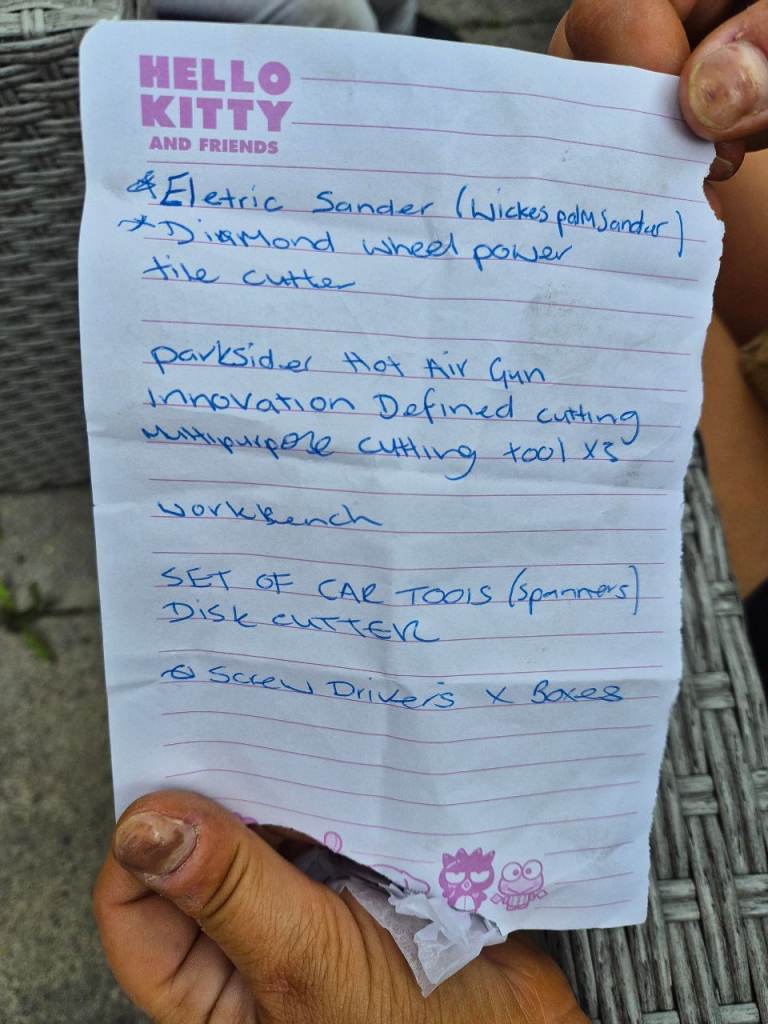 HELLO
KITTY
AND FRIENDS
* Eletric Sander (Wickes palm Sander)
* Diamond wheel power
tile cutter
parksider Hot Air Gun
Innovation Defined cutting
Multipurpose cutting tool x3
workbench
SET OF CAR TOOLS (spanners)
DISK CUTTER
Screw Drivers x Boxes